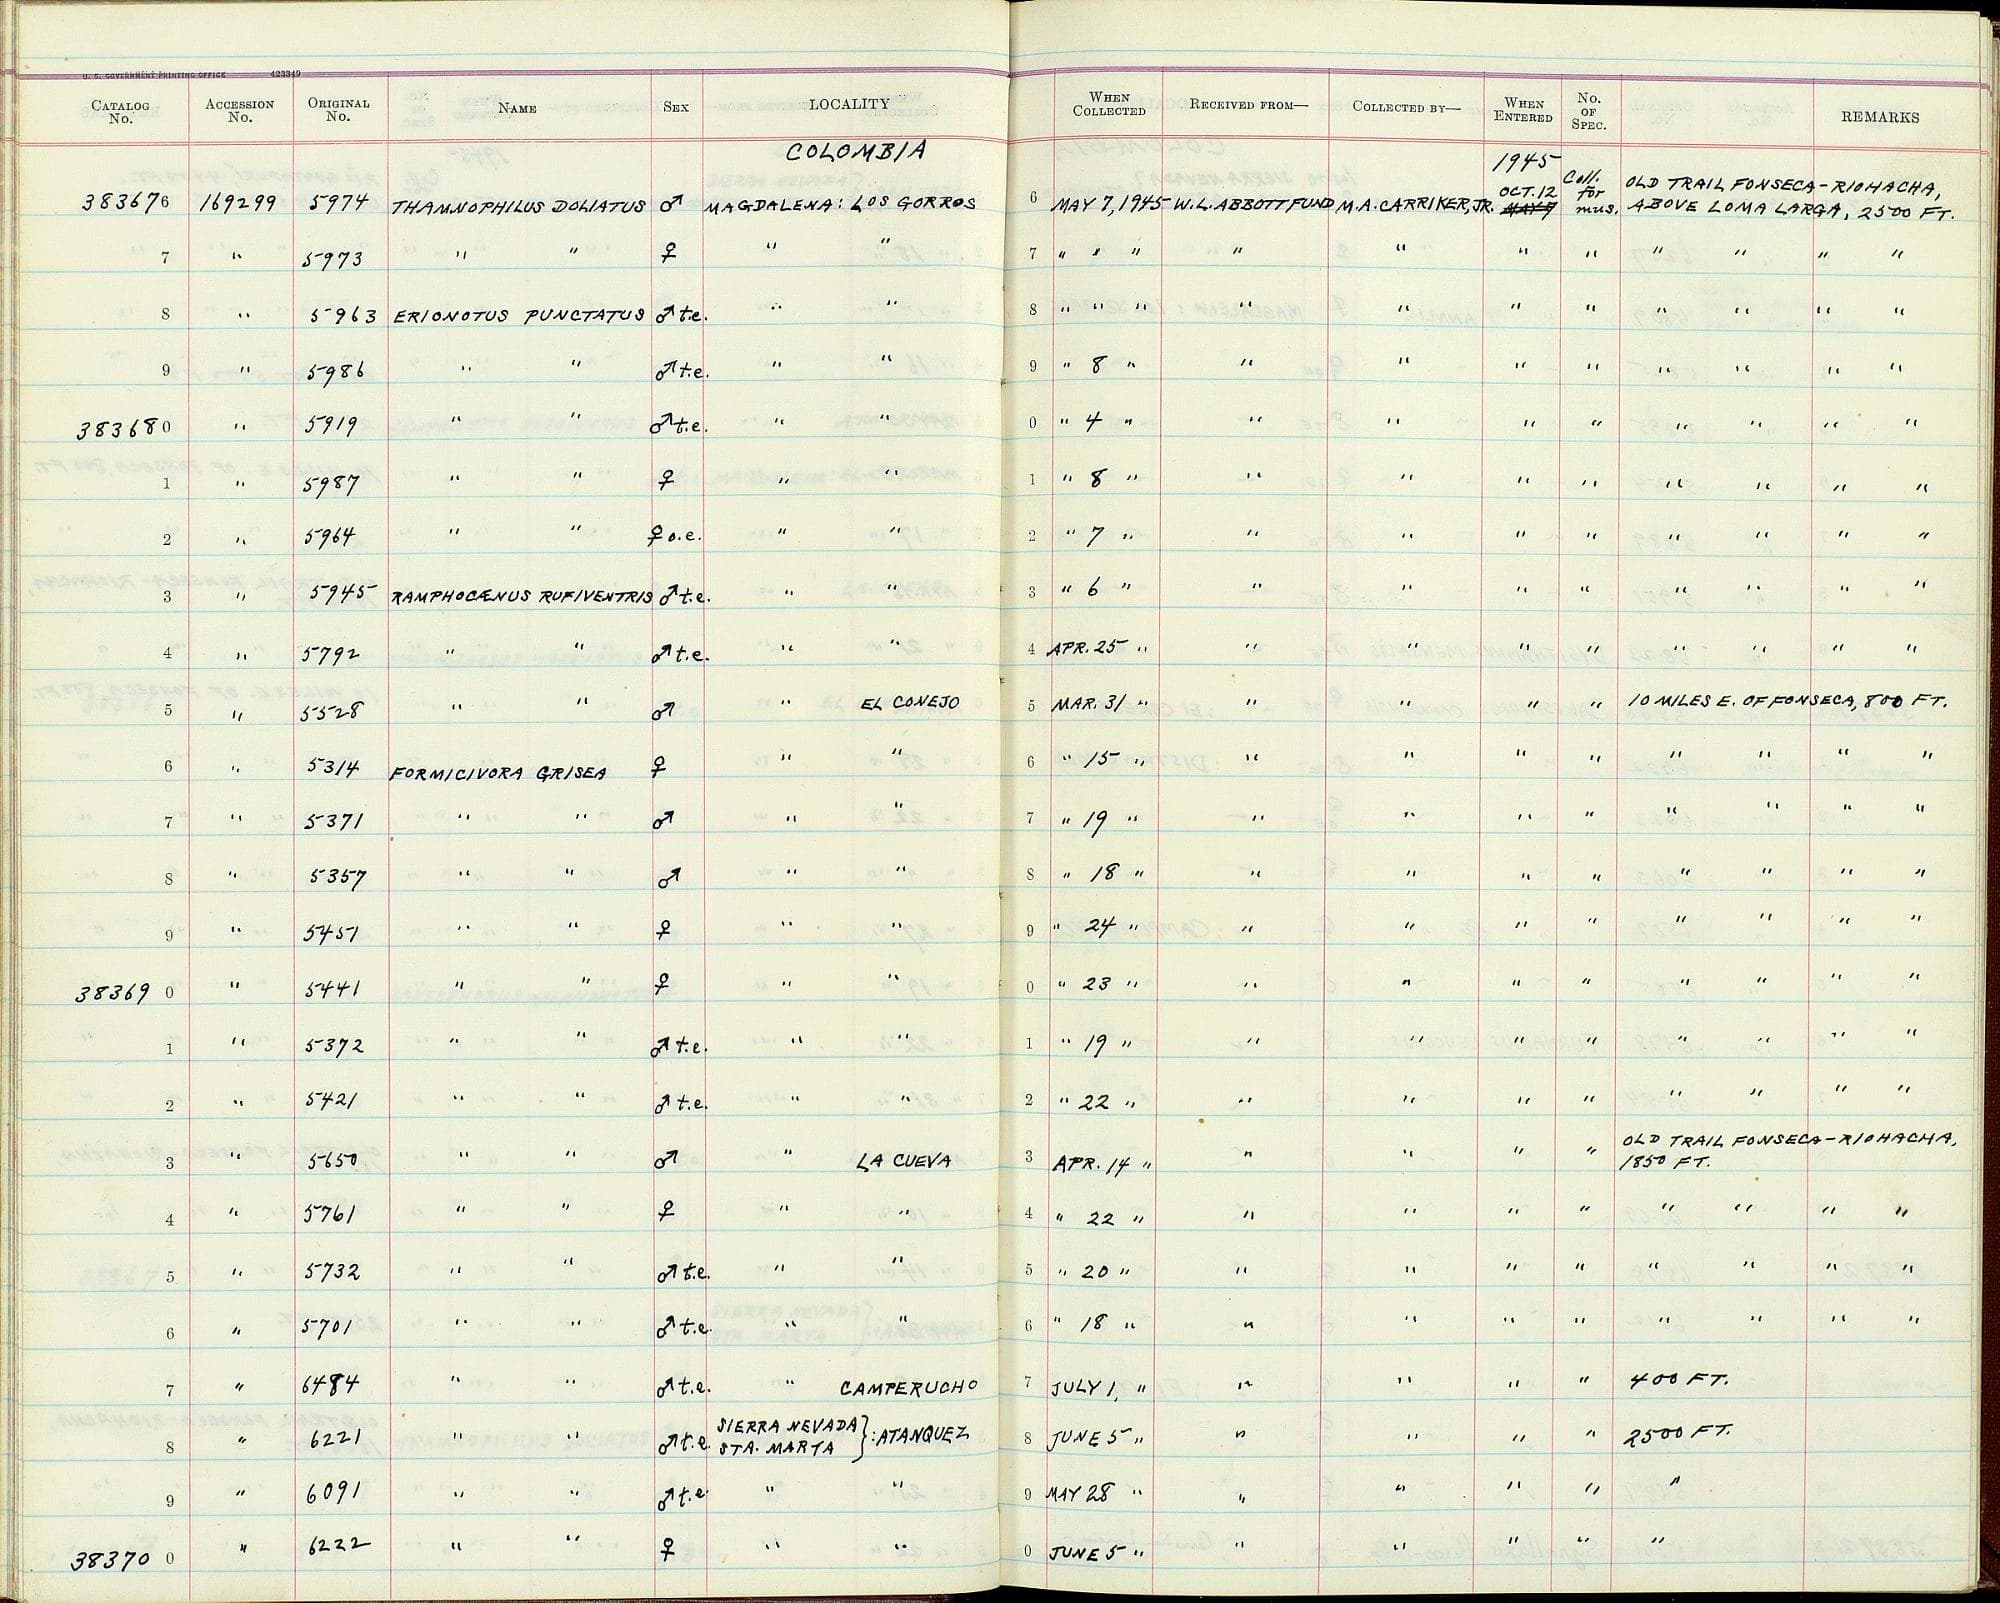 U. S. GOVERNMENT PRINTING OFFICE 423349
CATALOG No. ACCESSION No. ORIGINAL No. NAME SEX LOCALITY WHEN COLLECTED RECEIVED FROM— COLLECTED BY— WHEN ENTERED No. OF SPEC. REMARKS
COLOMBIA 1945
383676 169299 5974 THAMNOPHILUS DOLIATUS ♂ MAGDALENA: LOS GORROS 6 MAY 7, 1945 W. L. ABBOTT FUND M. A. CARRIKER, JR. OCT. 12 MAY 9 Coll. for mus. OLD TRAIL FONSECA-RIOHACHA, ABOVE LOMA LARGA, 2500 FT.
7 " 5973 " " ♀ " " 7 " " " " " " " " " " "
8 " 5963 ERIONOTUS PUNCTATUS ♂ t.e. " " 8 " " " " " " " " " " "
9 " 5986 " " ♂ t.e. " " 9 " 8 " " " " " " " " "
383680 " 5919 " " ♂ t.e. " " 0 " 4 " " " " " " " " "
1 " 5987 " " ♀ " " 1 " 8 " " " " " " " " "
2 " 5964 " " ♀ o.e. " " 2 " 7 " " " " " " " " "
3 " 5945 RAMPHOCÆNUS RUFIVENTRIS ♂ t.e. " " 3 " 6 " " " " " " " " "
4 " 5792 " " ♂ t.e. " " 4 APR. 25 " " " " " " " " "
5 " 5528 " " ♂ " EL CONEJO 5 MAR. 31 " " " " " 10 MILES E. OF FONSECA, 800 FT.
6 " 5314 FORMICIVORA GRISEA ♀ " " 6 " 15 " " " " " " " " "
7 " 5371 " " ♂ " " 7 " 19 " " " " " " " " "
8 " 5357 " " ♂ " " 8 " 18 " " " " " " " " "
9 " 5451 " " ♀ " " 9 " 24 " " " " " " " " "
383690 " 5441 " " ♀ " " 0 " 23 " " " " " " " " "
1 " 5372 " " ♂ t.e. " " 1 " 19 " " " " " " " " "
2 " 5421 " " ♂ t.e. " " 2 " 22 " " " " " " " " "
3 " 5650 " " ♂ " LA CUEVA 3 APR. 14 " " " " " OLD TRAIL FONSECA-RIOHACHA, 1850 FT.
4 " 5761 " " ♀ " " 4 " 22 " " " " " " " " "
5 " 5732 " " ♂ t.e. " " 5 " 20 " " " " " " " " "
6 " 5701 " " ♂ t.e. " " 6 " 18 " " " " " " " " "
7 " 6484 " " ♂ t.e. " CAMPERUCHO 7 JULY 1, " " " " " 400 FT.
8 " 6221 " " ♂ t.e. SIERRA NEVADA STA. MARTA }: ATANQUEZ 8 JUNE 5 " " " " " 2500 FT.
9 " 6091 " " ♂ t.e. " " 9 MAY 28 " " " " " "
383700 " 6222 " " ♀ " " 0 JUNE 5 " " " " " "